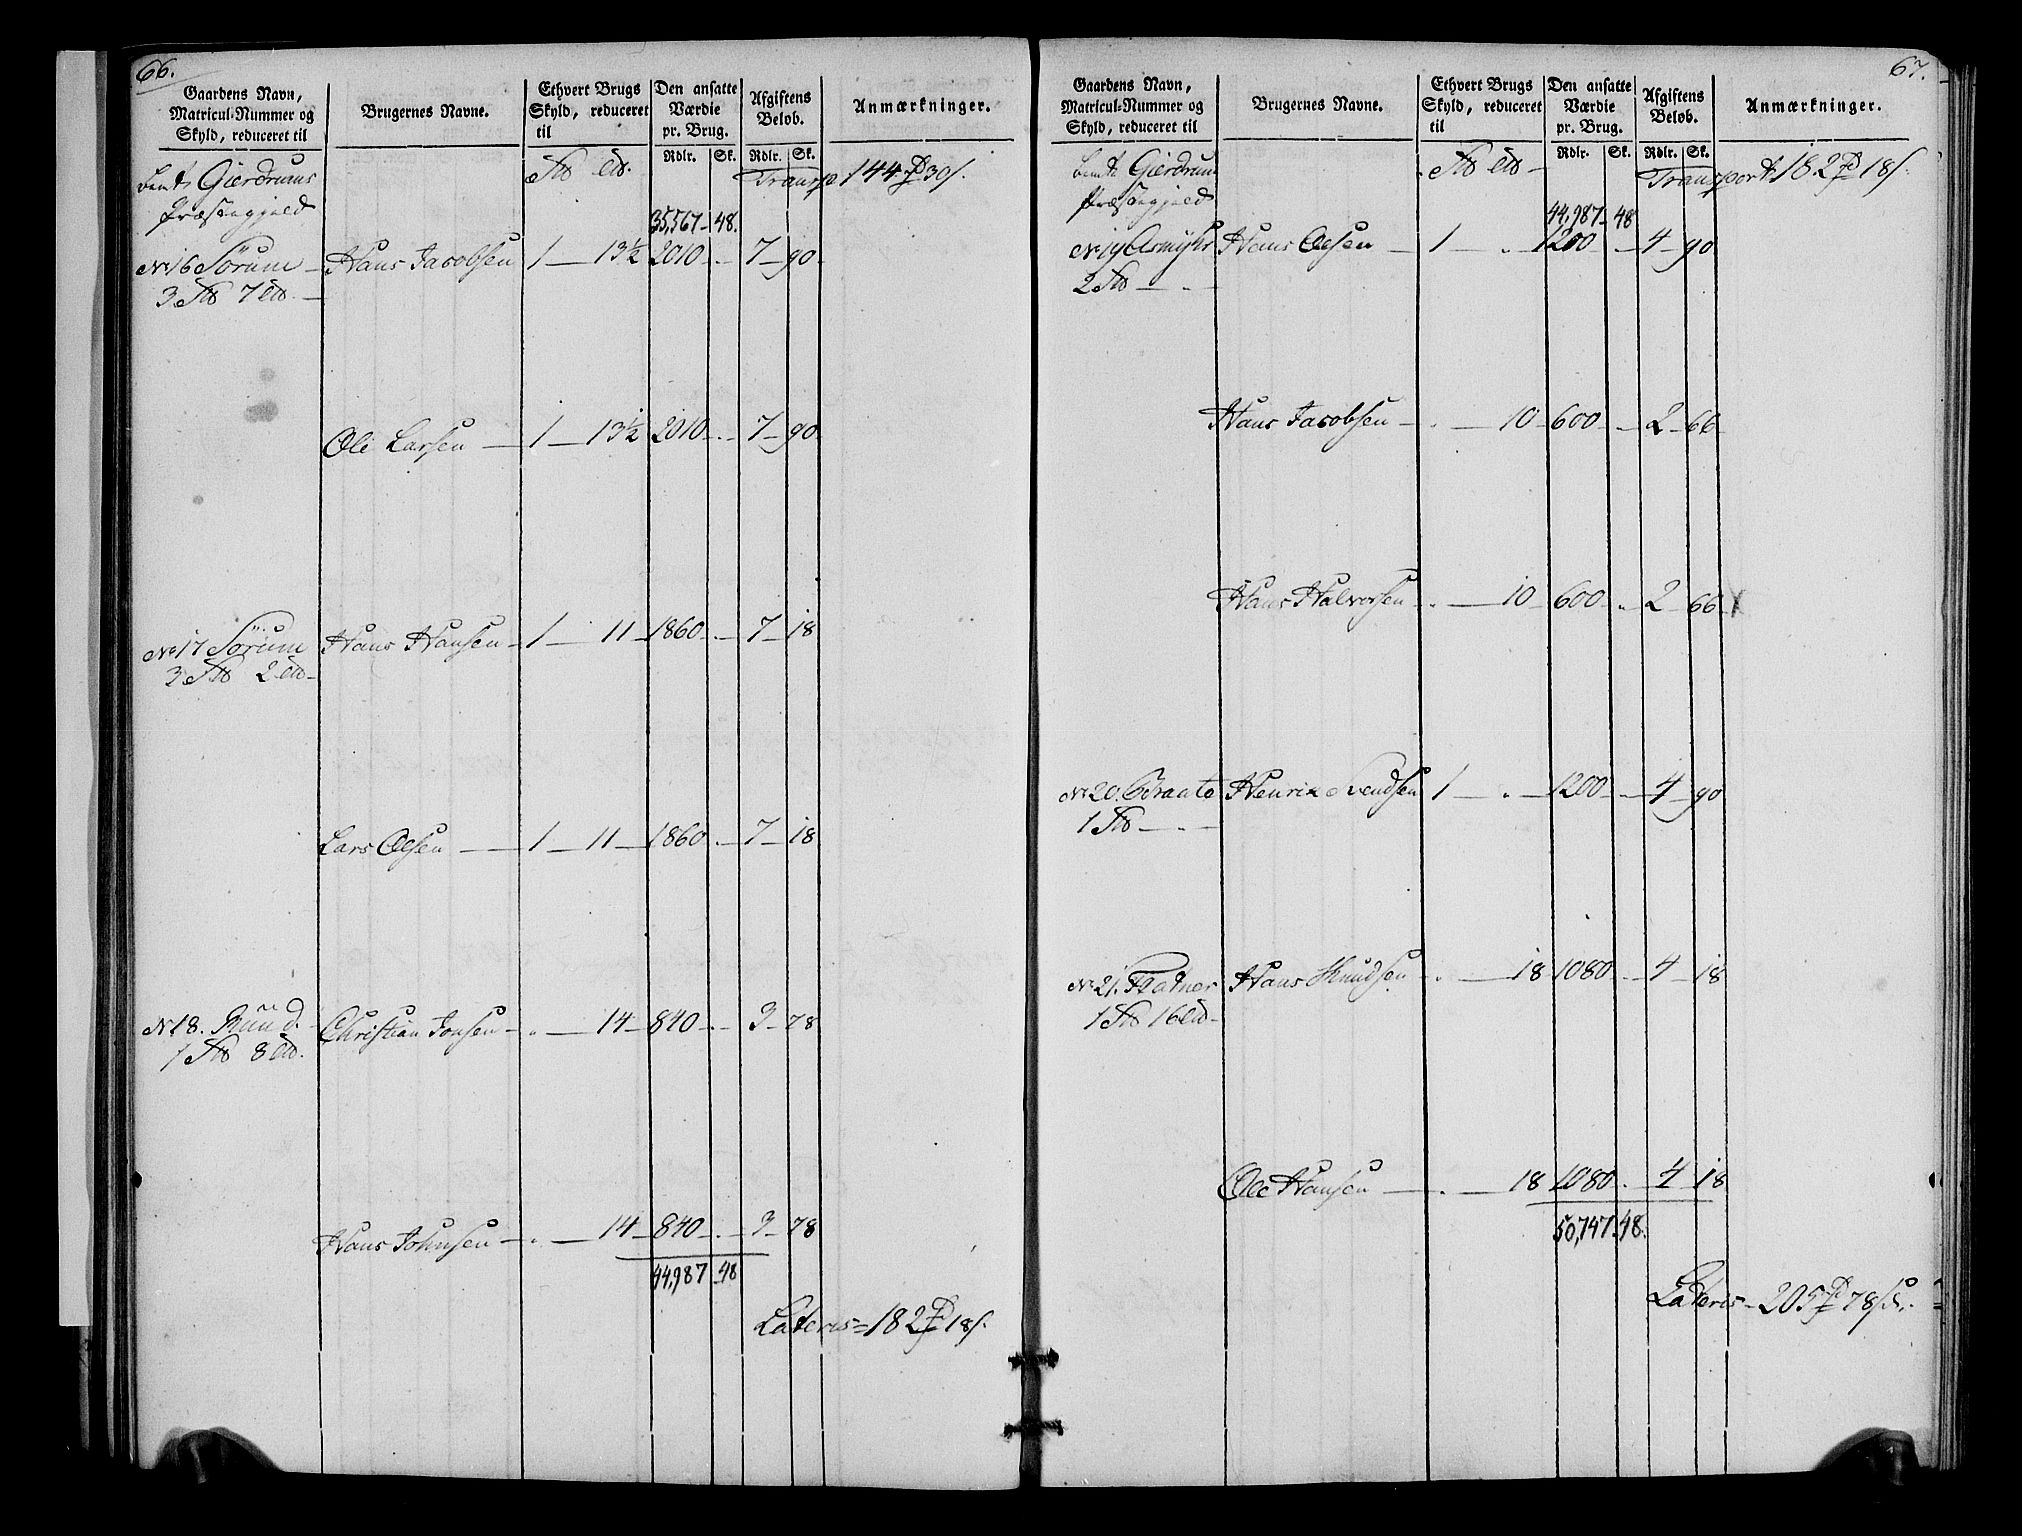 66.
Gaardens Navn, Matricul-Nummer og Skyld, reduceret til
Brugernes Navne.
Ethvert Brugs Skyld, reduceret til
Den ansatte Værdie pr. Brug.
Afgiftens Beløb.
Anmærkninger.
Rdlr. Sk. Rdlr. Sk.
Gierdrums Transp 144 30 s.
Præstegjeld
35,567 - 48.
No 16 Sörum - Hans Jacobsen 1 - 13½ 2010 - . - 7 - 90
3 7
Ole Larsen - 1 - 13½ 2010 - . - 7 - 90
No 17 Sörum Hans Hansen - 1 - 11 - 1860 - . - 7 - 18
3 2
Lars Olsen - 1 - 11 - 1860 - . - 7 - 18
No 18. Christian Jonsen - . - 14 - 840 - . - 3 - 78
1 8
Hans Johnsen - . - 14 - 840 - . - 3 - 78
44,987 - 48
Lateris = 182 18 s.
67.
Gaardens Navn, Matricul-Nummer og Skyld, reduceret til
Brugernes Navne.
Ethvert Brugs Skyld, reduceret til
Den ansatte Værdie pr. Brug.
Afgiftens Beløb.
Anmærkninger.
Rdlr. Sk. Rdlr. Sk.
Gierdrum Transport 182 18 s.
Præstegjeld
44,987 - 48
No 19 Asmyhr Hans Olsen - 1 - . - 1200 - 4 - 90
2
Hans Jacobsen - . - 10 - 600 - - 2 - 66
Hans Halvorsen - . - 10 - 600 - . 2 - 66
No 20. Braate Henrik Svendsen 1 - . - 1200 - - 4 - 90
1
No 21. Hans Knudsen - . - 18 1080 - - 4 - 18
1 16
Ole Hansen - . - 18 1080 . 4 - 18
50,747 . 48.
Lateris - 205 78